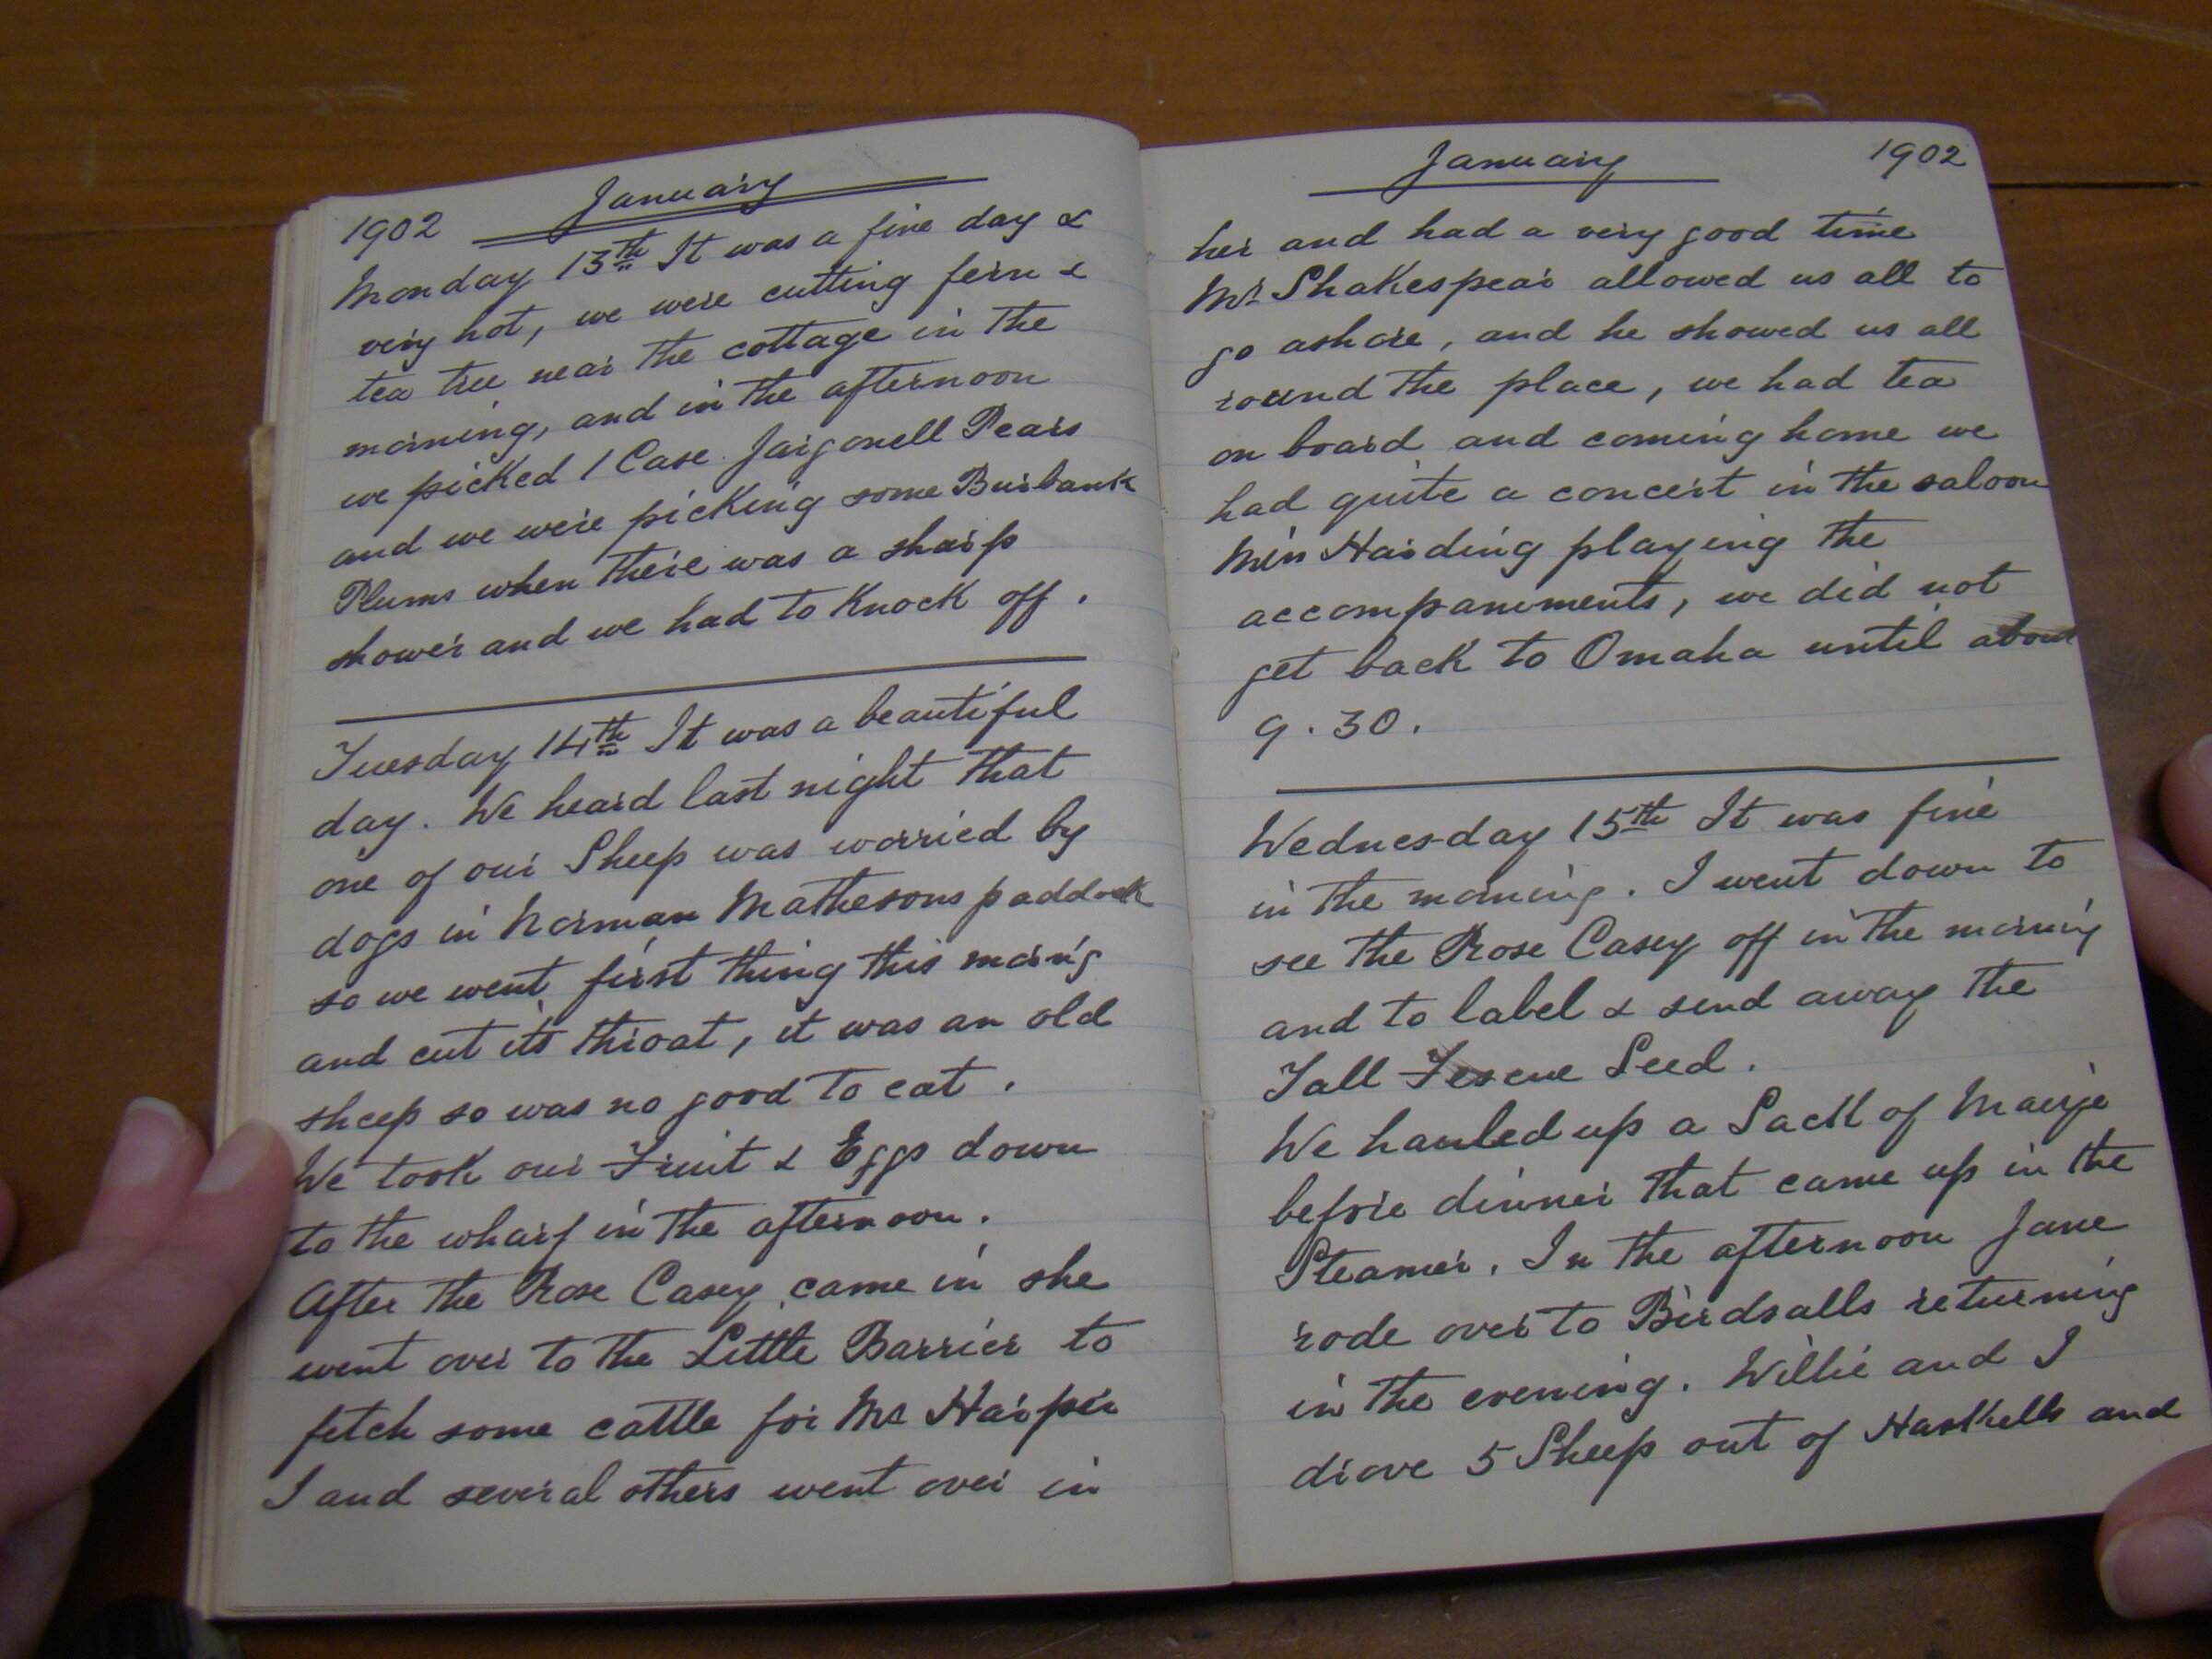 1902 January
Monday 13th It was a fine day &
very hot, we were cutting fern &
tea tree near the cottage in the
morning, and in the afternoon
we picked 1 Case Jargonell Pears
and we were picking some Burbank
Plums when there was a sharp
shower and we had to knock off.
Tuesday 14th It was a beautiful
day. We heard last night that
one of our Sheep was worried by
dogs in Norman Mathesons paddock
so we went first thing this morng
and cut its throat, it was an old
sheep so was no good to eat.
We took our Fruit & Eggs down
to the wharf in the afternoon.
After the Rose Casey came in she
went over to the Little Barrier to
fetch some cattle for Mr Harper
I and several others went over in
January 1902
her and had a very good time
Mr Shakespear allowed us all to
go ashore, and he showed us all
round the place, we had tea
on board and coming home we
had quite a concert in the saloon
Min Harding playing the
accompaniments, we did not
get back to Omaha until about
9.30.
Wednesday 15th It was fine
in the morning. I went down to
see the Rose Casey off in the morning
and to label & send away the
Tall Fescue Seed.
We hauled up a Sack of Maize
before dinner that came up in the
Steamer. In the afternoon Jane
rode over to Birdsalls returning
in the evening. Willie and I
drove 5 Sheep out of Haskells and